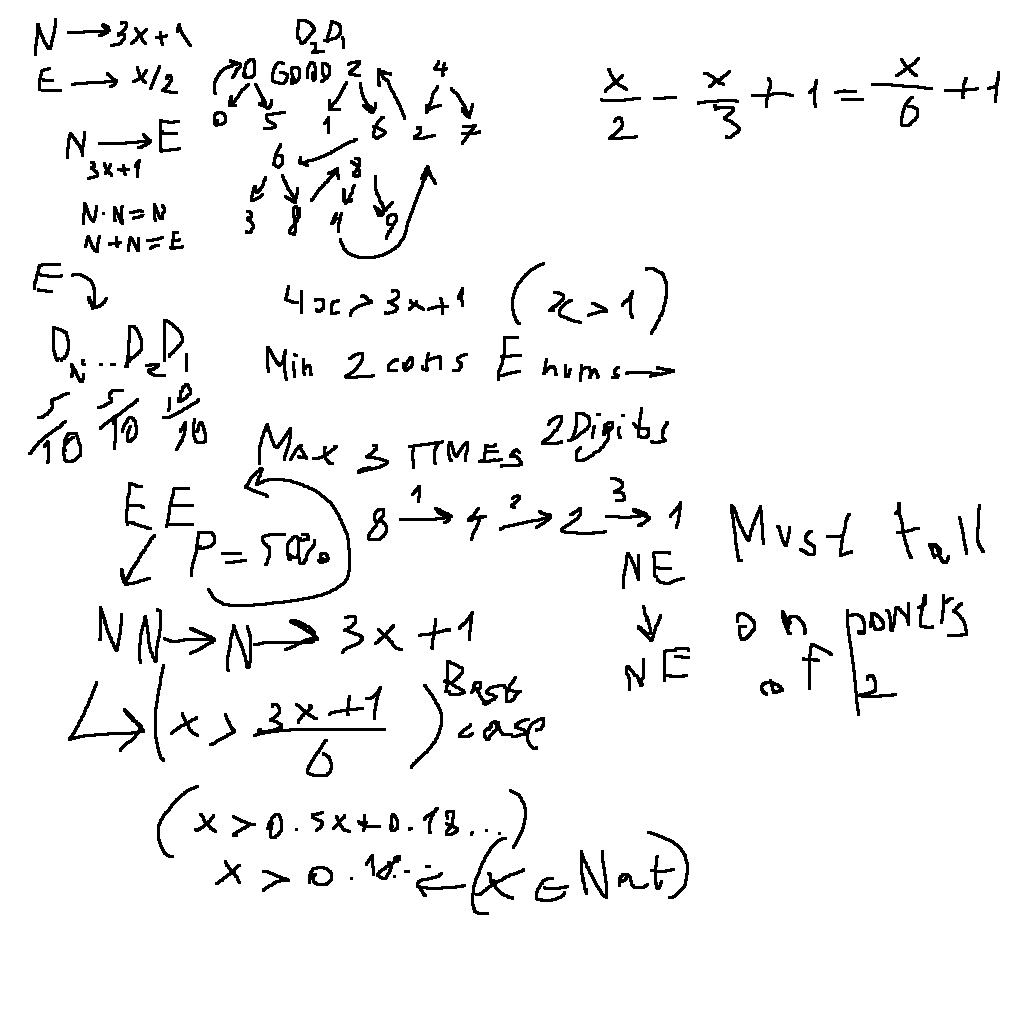 N → 3x+1
E → x/2
N → E
3x+1
N·N=N
N+N=E
D₂D₁
0 GOOD 2 4
0 5 1 6 2 7
6 8
3 8 4 9
x/2 - x/3 + 1 = x/6 + 1
E
Dₙ...D₂D₁
5/10 5/10 10/10
4x > 3x+1 (x>1)
Min 2 cons E nums →
2Digits
Max 3 TIMES
8 →1 4 →2 2 →3 1
E E
P=50%
NE
↓
NE
Must fall
on powers
of 2
NN → N → 3x+1
(x > 3x+1/6) Best
case
(x > 0.5x+0.18...)
x > 0.18... ← (x ∈ Nat)